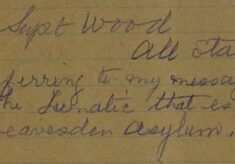 Supt Wood
All Sta
ferring to my messa
the Lunatic that es
eavesden asylum.